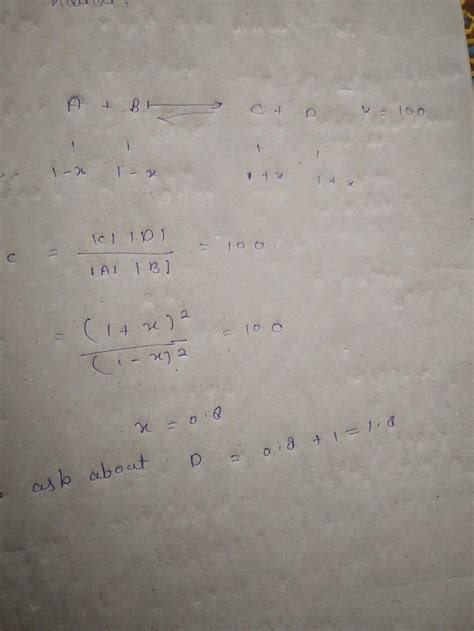 A + B ⇌ C + D K = 100
1 1 1 1
1-x 1-x 1+x 1+x
c = |C| |D| / |A| |B] = 100
= (1 + x)² / (1 - x)² = 100
x = 0.8
ask about D = 0.8 + 1 = 1.8